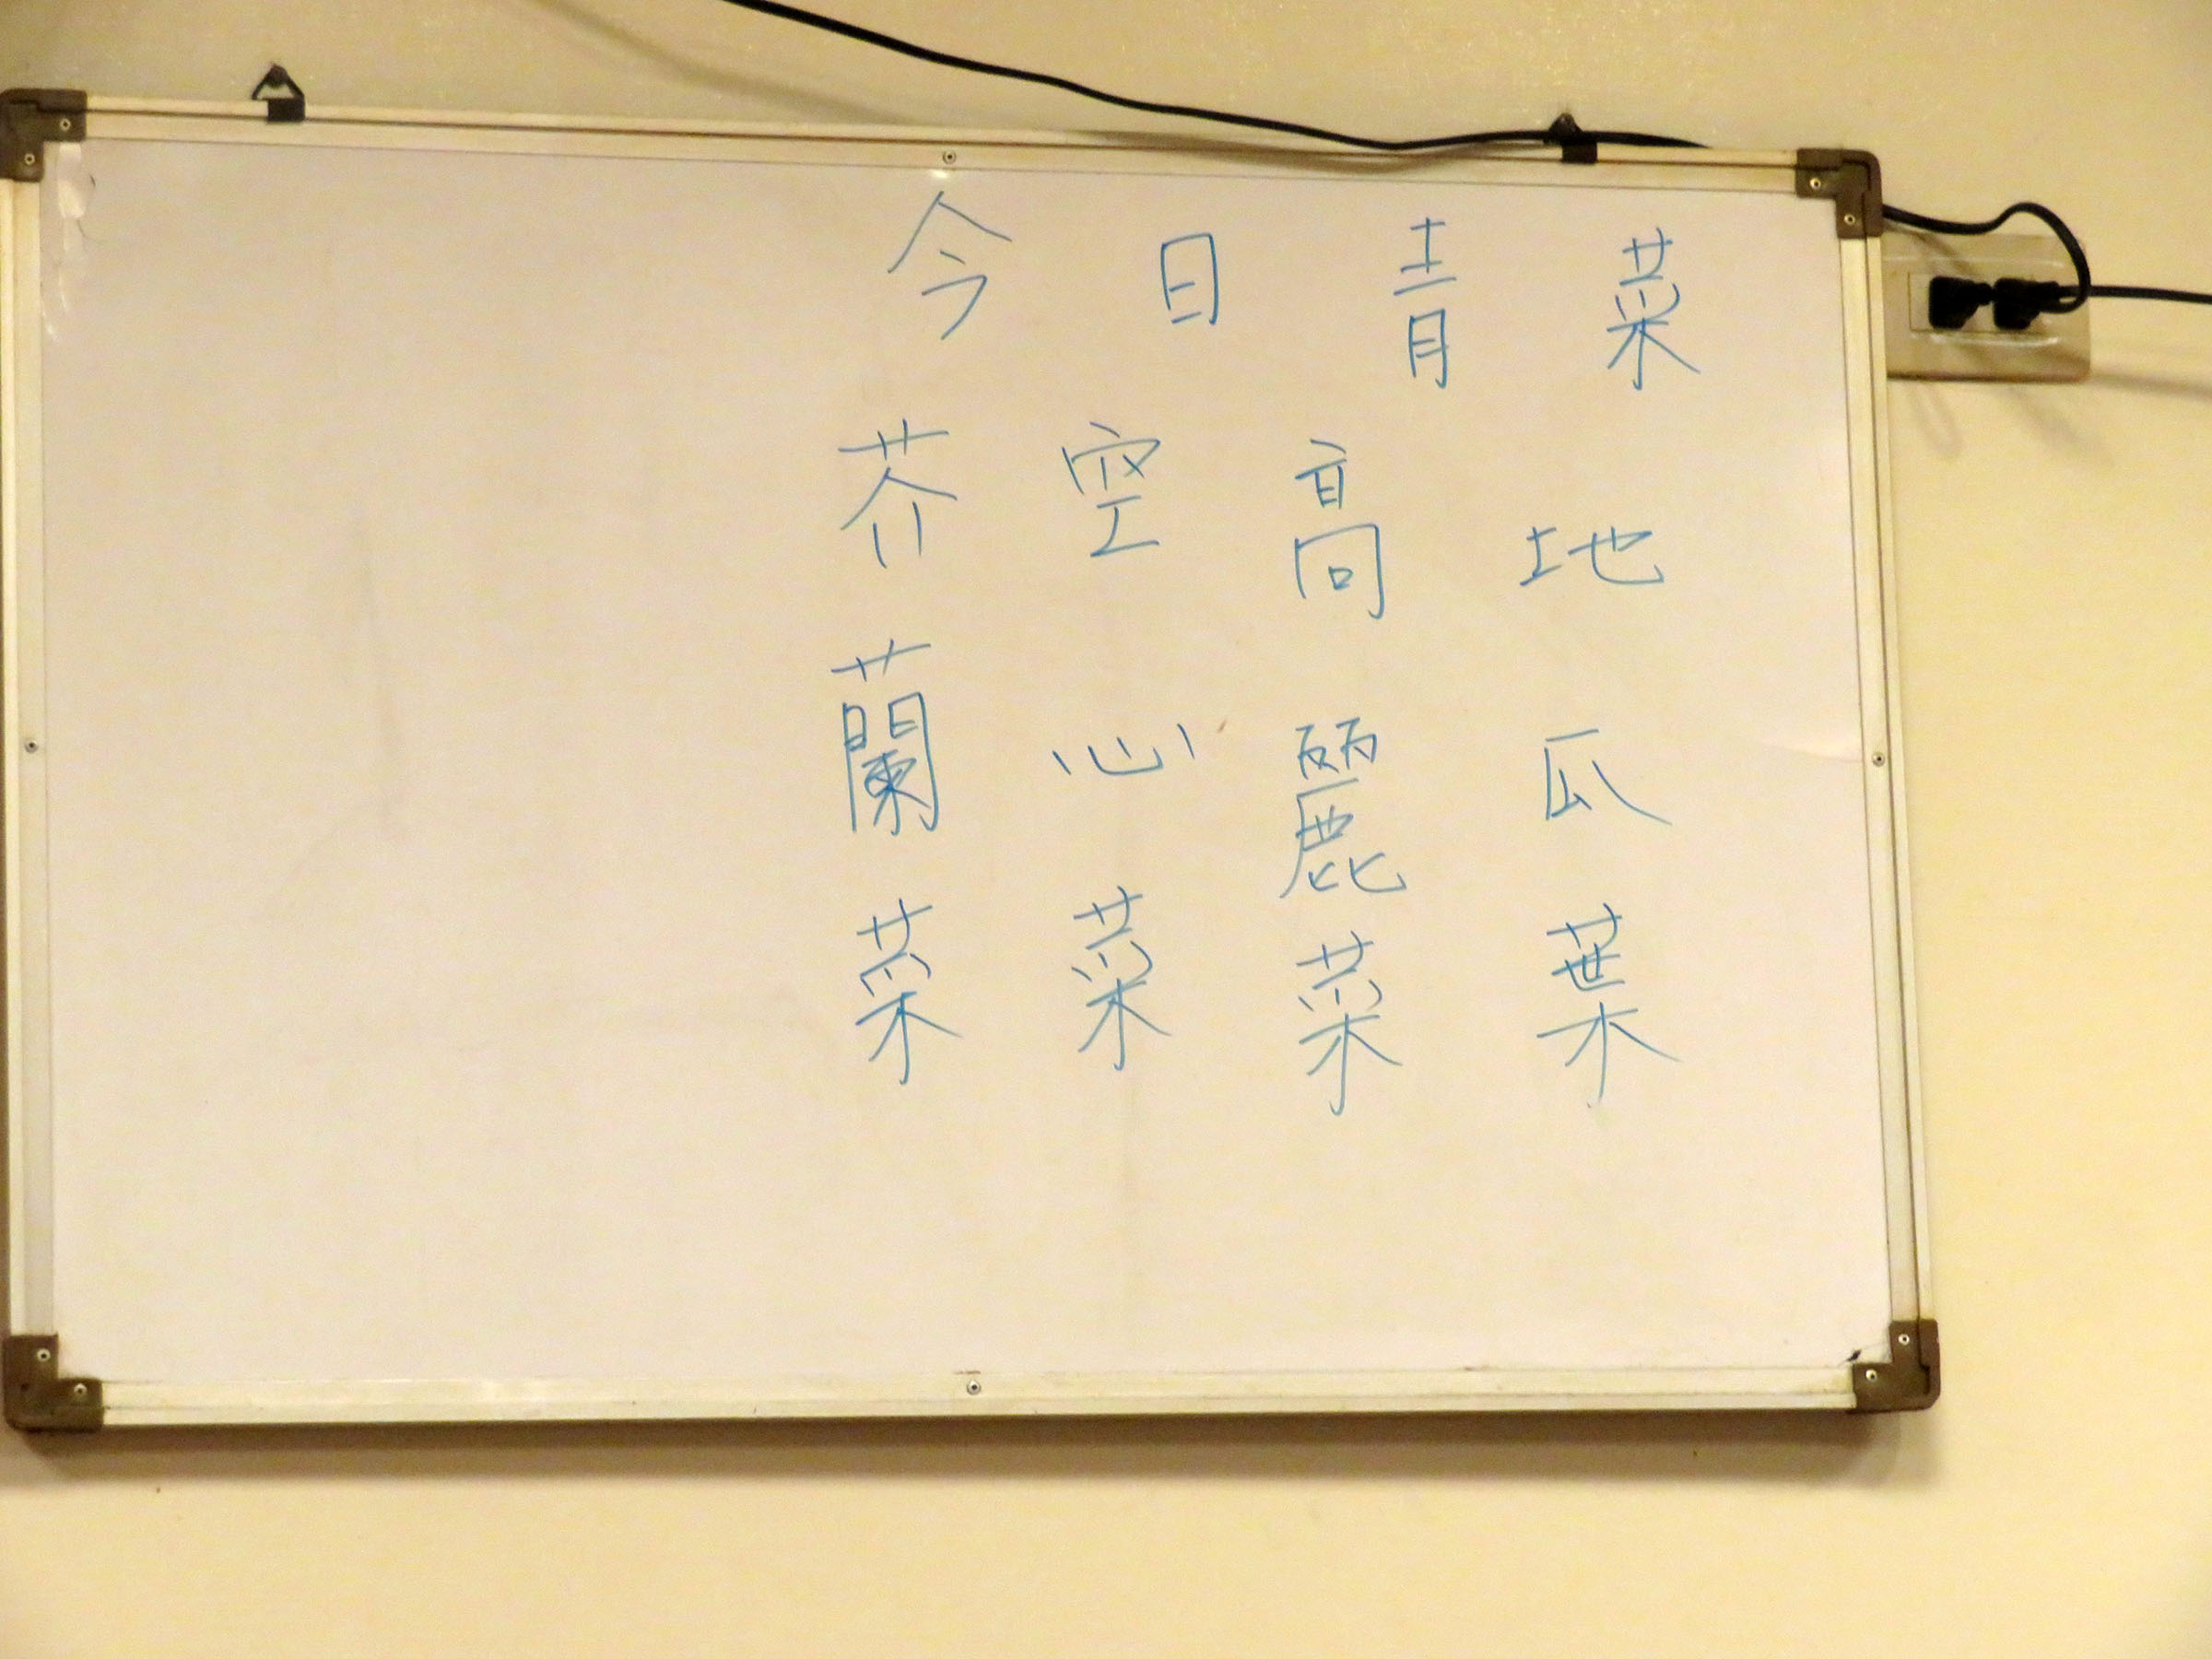 今日青菜
芥蘭菜
空心菜
高麗菜
地瓜葉